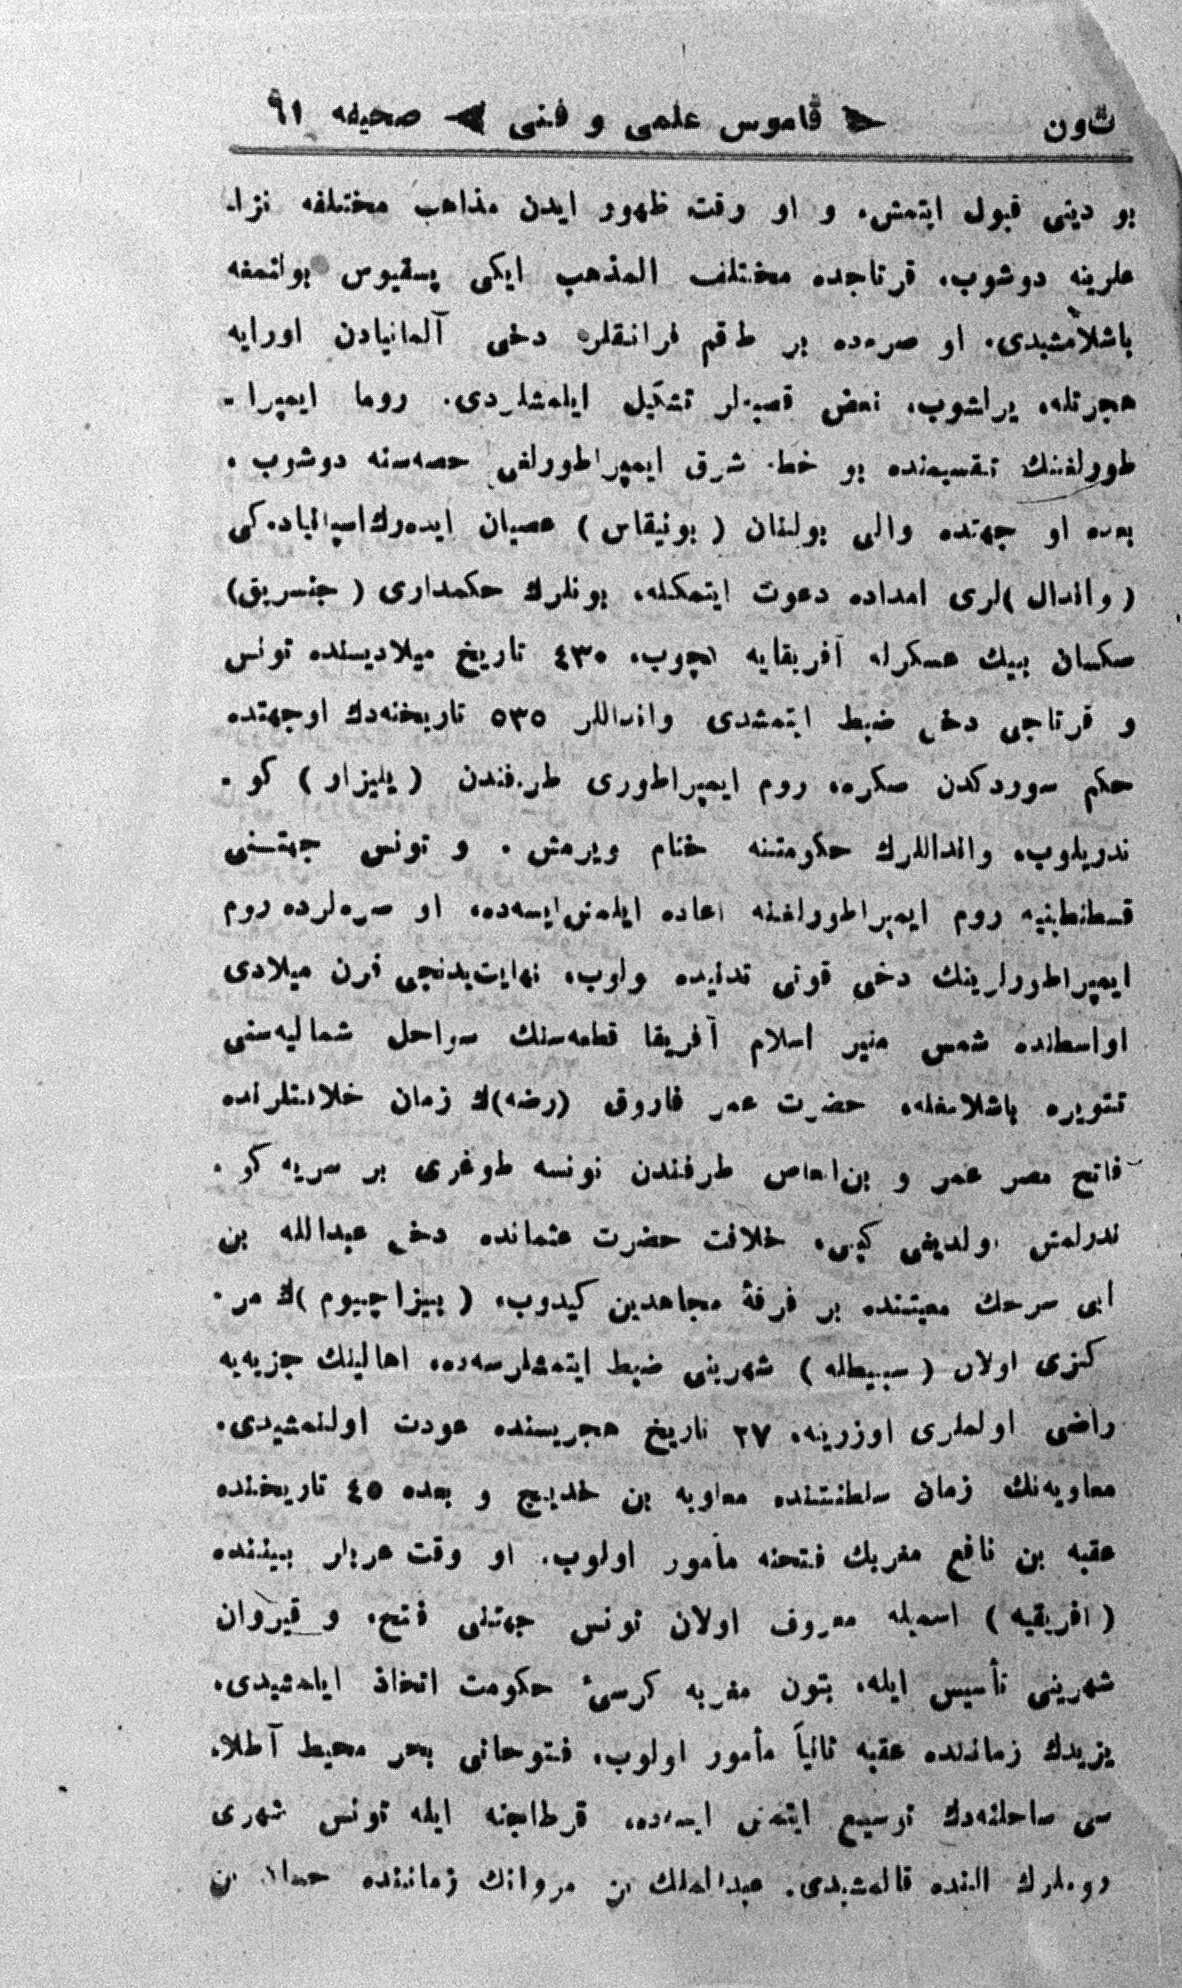 تون ◄ قاموس علمی و فنی ► صحیفه ٩١
بو دینی قبول ایتمش، و او وقت ظهور ایدن مذاهب مختلفه نزاـ
علرینه دوشوب، قرتاجده مختلف المذهب ایکی پسقپوس بولنمغه
باشلامشیدی. او صره‌ده بر طاقم فرانقلر دخی آلمانیادن اورایه
هجرتله، یرلشوب، بعض قصبه‌لر تشکیل ایلمشلردی. روما ایمپراـ
طورلغنك تقسیمنده بو خطه شرق ایمپراطورلغی حصه‌سنه دوشوب،
بعده او جهتده والی بولنان (بونیقاس) عصیان ایده‌رك اسپانیاده‌کی
(واندال)لری امداده دعوت ایتمکله، بونلرك حکمداری (جنسریق)
سکسان بیك عسکرله آفریقایه کچوب، ٤٣٠ تاریخ میلادیسنده تونس
و قرتاجی دخی ضبط ایتمشدی واندالر ٥٣٥ تاریخنه‌دك اوجهتده
حکم سوردکدن صکره، روم ایمپراطوری طرفندن (بلیزار) کوـ
ندریلوب، واندالرك حکومتنه ختام ویرمش. و تونس جهتنی
قسطنطینیه روم ایمپراطورلغنه اعاده ایلمش ایسه‌ده، او صره‌لرده روم
ایمپراطورلرینك دخی قوتی تدنیده اولوب، نهایت یدنجی قرن میلادی
اواسطنده شمس منیر اسلام آفریقا قطعه‌سنك سواحل شمالیه‌سنی
تنویره باشلامغله، حضرت عمر فاروق (رضه)ك زمان خلافتلرنده
فاتح مصر عمر و بن العاص طرفندن تونسه طوغری بر سریه کوـ
ندرلمش اولدیغی کبی، خلافت حضرت عثمانده دخی عبدالله بن
ابی سرحك معیتنده بر فرقهٔ مجاهدین کیدوب، (بیزاچیوم)ك مرـ
کزی اولان (سبیطله) شهرینی ضبط ایتمشلرسه‌ده، اهالینك جزیه‌یه
راضی اولملری اوزرینه، ٢٧ تاریخ هجریسنده عودت اولنمشیدی.
معاویه‌نك زمان سلطنتنده معاویه بن خدیج و بعده ٤٥ تاریخنده
عقبه بن نافع مغربك فتحنه مأمور اولوب. او وقت عربلر بیننده
(افریقیه) اسمیله معروف اولان تونس جهتنی فتح، و قیروان
شهرینی تأسیس ایله، بتون مغربه کرسئ حکومت اتخاذ ایلمشیدی.
یزیدك زماننده عقبه ثانیاً مأمور اولوب، فتوحاتی بحر محیط آطلاـ
سی ساحلنه‌دك توسیع ایتمش ایسه‌ده، قرطاجنه ایله تونس شهری
روملرك النده قالمشیدی. عبدالملك بن مروانك زماننده حسان بن